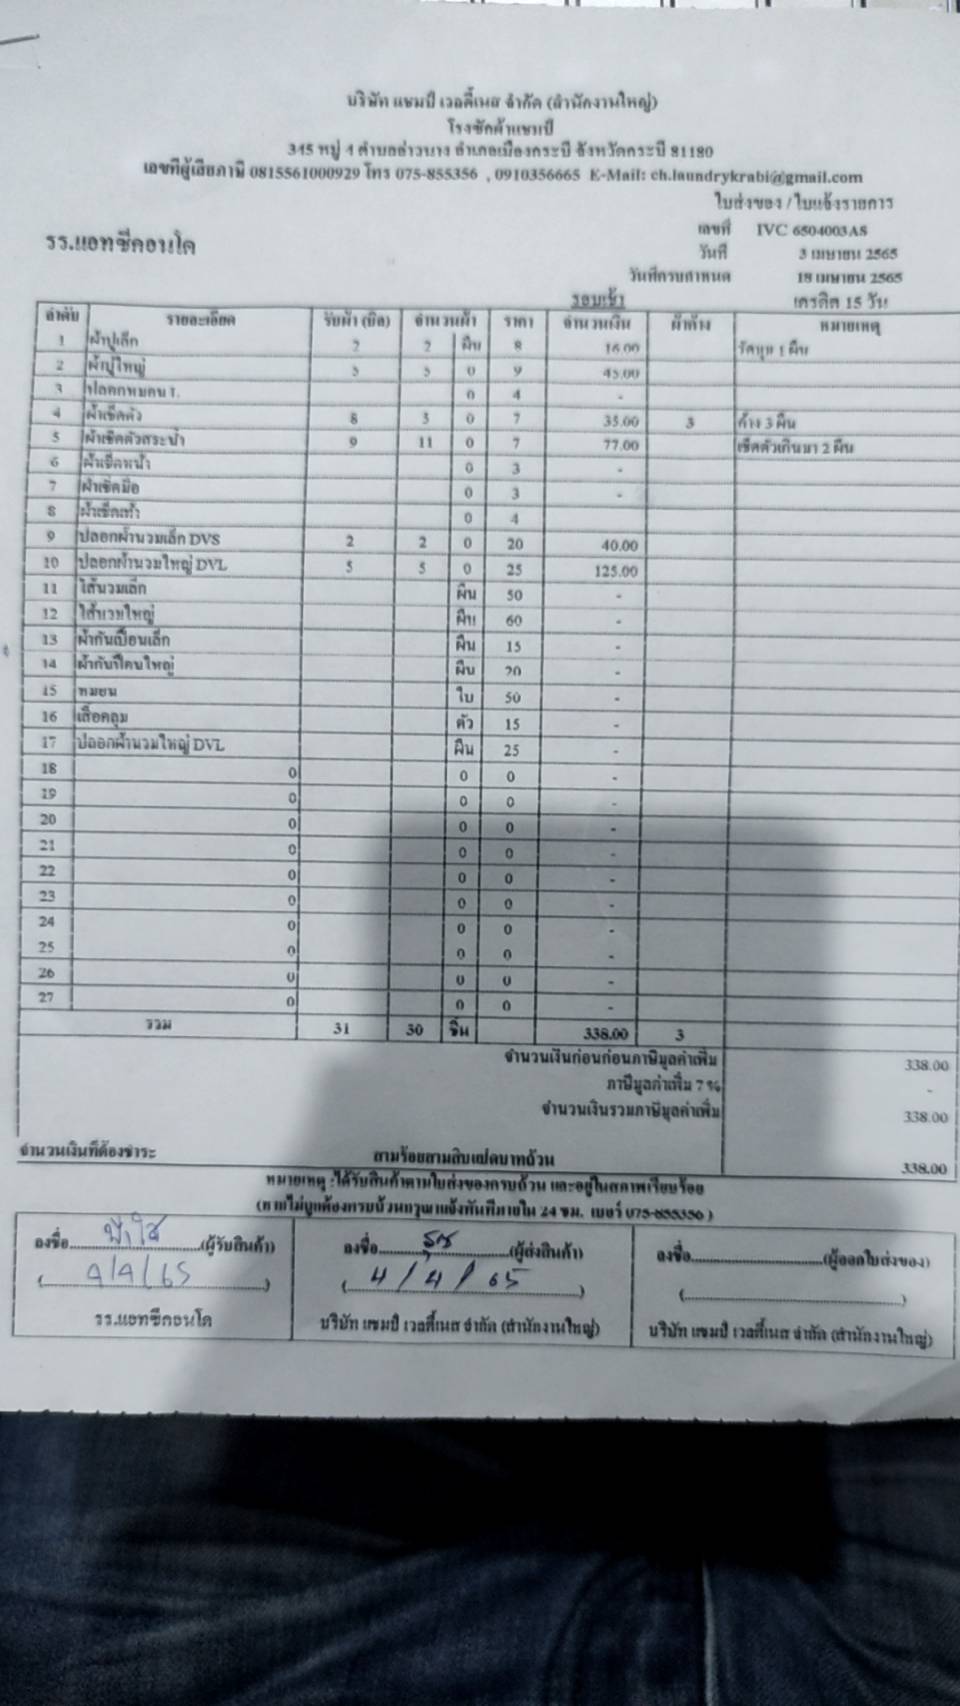 บริษัท แชมป์ เวลตี้เนส จำกัด (สำนักงานใหญ่)
โรงซักผ้าแชมป์
345 หมู่ 4 ตำบลอ่าวนาง อำเภอเมืองกระบี่ จังหวัดกระบี่ 81180
เลขที่ผู้เสียภาษี 0815561000929 โทร 075-855356 , 0910356665 E-Mail: ch.laundrykrabi@gmail.com
ใบส่งของ / ใบแจ้งรายการ
เลขที่ IVC 6504003AS
รร.แอทซีคอนโด
วันที่ 3 เมษายน 2565
วันที่ครบกำหนด 18 เมษายน 2565
รอบเช้า เครดิต 15 วัน
ลำดับ รายละเอียด รับผ้า (บิล) จำนวนผ้า ราคา จำนวนเงิน ผ้าค้าง หมายเหตุ
1 ผ้าปูเล็ก 2 2 ผืน 8 16.00 1 ผืน
2 ผ้าปูใหญ่ 5 5 0 9 45.00
3 ปลอกหมอน 0 4 -
4 ผ้าเช็ดตัว 8 5 0 7 35.00 3 ค้าง 3 ผืน
5 ผ้าเช็ดตัวสระน้ำ 9 11 0 7 77.00 เช็ดตัวเกินมา 2 ผืน
6 ผ้าเช็ดหน้า 0 3 -
7 ผ้าเช็ดมือ 0 3 -
8 ผ้าเช็ดเท้า 0 4
9 ปลอกผ้านวมเล็ก DVS 2 2 0 20 40.00
10 ปลอกผ้านวมใหญ่ DVL 5 5 0 25 125.00
11 ไส้นวมเล็ก ผืน 50 -
12 ไส้นวมใหญ่ ผืน 60 -
13 ผ้ากันเปื้อนเล็ก ผืน 15 -
14 ผ้ากันเปื้อนใหญ่ ผืน 20 -
15 หมอน ใบ 50 -
16 เสื้อคลุม ตัว 15 -
17 ปลอกผ้านวมใหญ่ DVL ผืน 25 -
18 0 0 0 -
19 0 0 0 -
20 0 0 0 -
21 0 0 0 -
22 0 0 0 -
23 0 0 0 -
24 0 0 0 -
25 0 0 0 -
26 0 0 0 -
27 0 0 0 -
รวม 31 30 ชิ้น 338.00 3
จำนวนเงินก่อนก่อนภาษีมูลค่าเพิ่ม 338.00
ภาษีมูลค่าเพิ่ม 7 % -
จำนวนเงินรวมภาษีมูลค่าเพิ่ม 338.00
จำนวนเงินที่ต้องชำระ สามร้อยสามสิบแปดบาทถ้วน 338.00
หมายเหตุ :ได้รับสินค้าตามใบส่งของครบถ้วน และอยู่ในสภาพเรียบร้อย
(หากไม่ถูกต้องครบถ้วนกรุณาแจ้งทันทีภายใน 24 ชม. เบอร์ 075-855356 )
ลงชื่อ (ผู้รับสินค้า) ลงชื่อ (ผู้ส่งสินค้า) ลงชื่อ (ผู้ออกใบส่งของ)
( 4/4/65 ) ( 4/4/65 ) ( )
รร.แอทซีคอนโด บริษัท แชมป์ เวลตี้เนส จำกัด (สำนักงานใหญ่) บริษัท แชมป์ เวลตี้เนส จำกัด (สำนักงานใหญ่)